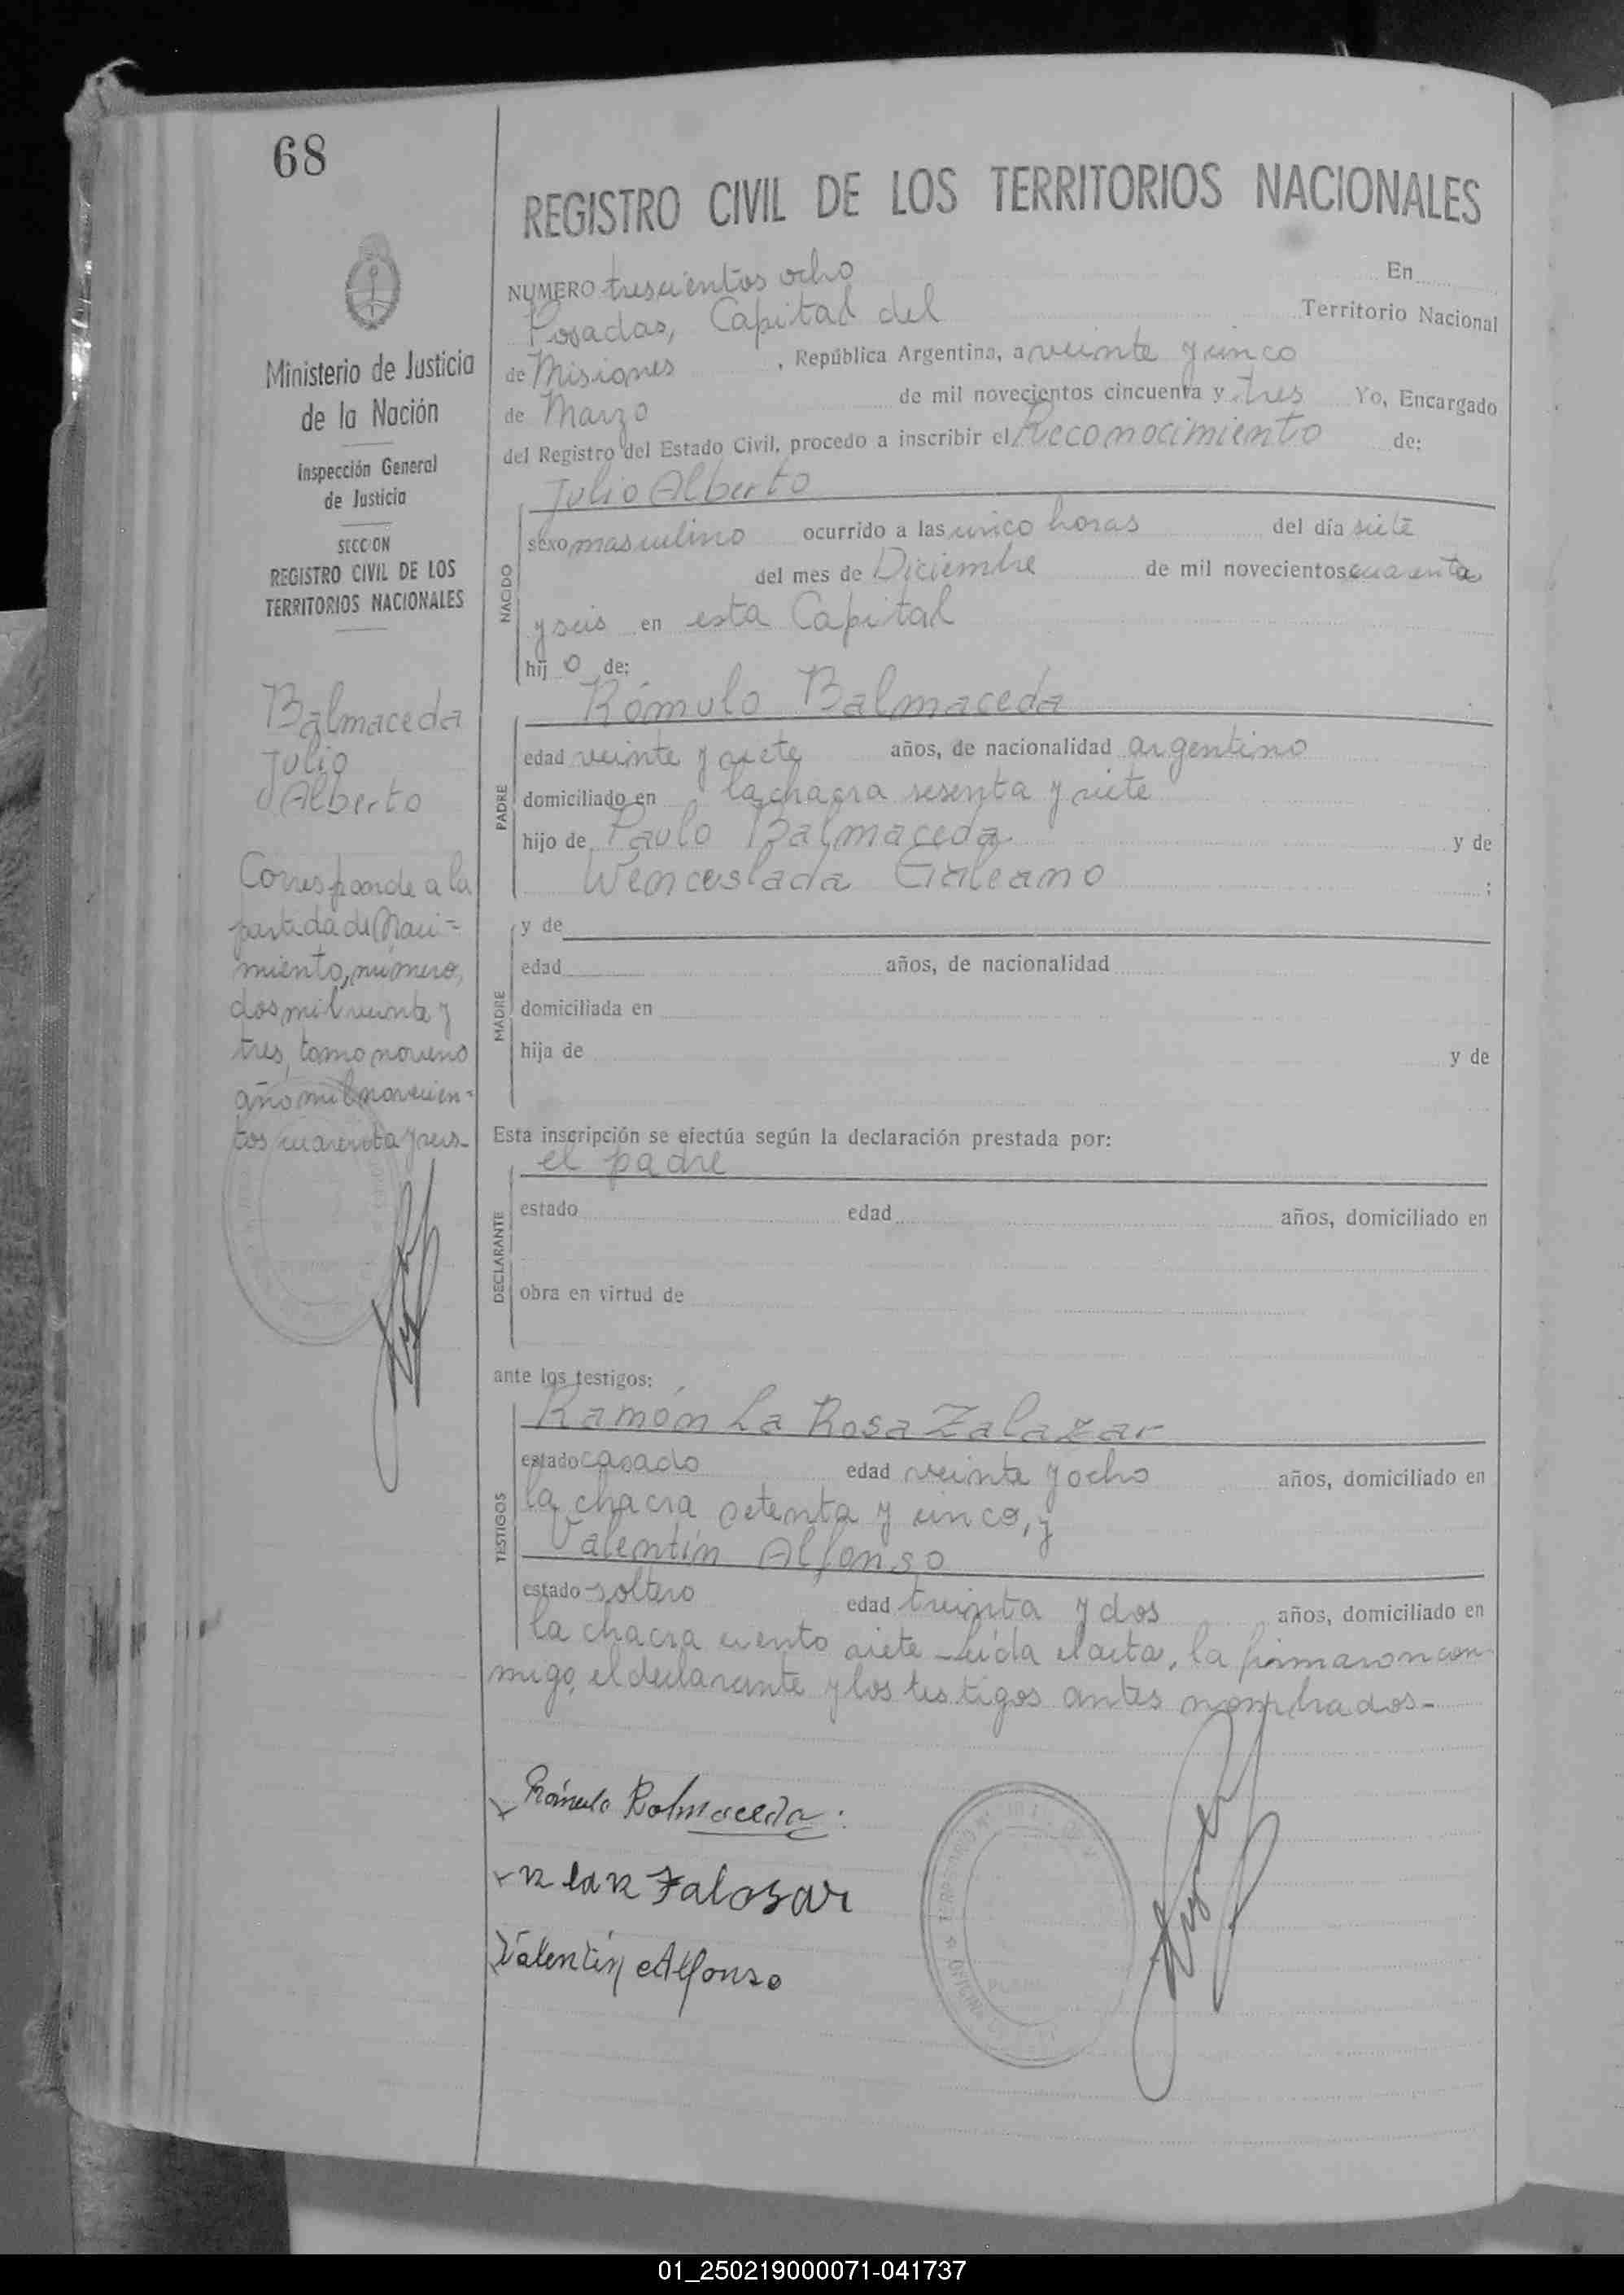 68
Ministerio de Justicia
de la Nación
Inspección General
de Justicia
SECCION
REGISTRO CIVIL DE LOS
TERRITORIOS NACIONALES
Balmaceda
Julio
Alberto
Corresponde a la
partida de Naci=
miento, número,
dos mil veinte y
tres, tomo noveno
año mil novecien=
tos cuarenta y seis-
REGISTRO CIVIL DE LOS TERRITORIOS NACIONALES
NUMERO trescientos ocho En
Posadas, Capital del Territorio Nacional
de Misiones, República Argentina, a veinte y cinco
de Marzo de mil novecientos cincuenta y tres Yo, Encargado
del Registro del Estado Civil, procedo a inscribir el Reconocimiento de:
Julio Alberto
NACIDO
sexo masculino ocurrido a las cinco horas del día siete
del mes de Diciembre de mil novecientos cuarenta
y seis en esta Capital
hij o de:
Rómulo Balmaceda
PADRE
edad veinte y siete años, de nacionalidad argentino
domiciliado en la chacra sesenta y siete
hijo de Paulo Balmaceda y de
Wenceslada Galeano ;
MADRE
y de
edad años, de nacionalidad
domiciliada en
hija de y de
Esta inscripción se efectúa según la declaración prestada por:
el padre
DECLARANTE
estado edad años, domiciliado en
obra en virtud de
ante los testigos:
Ramón La Rosa Zalazar
TESTIGOS
estado casado edad veinte y ocho años, domiciliado en
la chacra setenta y cinco, y
Valentín Alfonso
estado soltero edad treinta y dos años, domiciliado en
la chacra ciento siete - Leída el acta, la firmaron con-
migo, el declarante y los testigos antes nombrados-
Rómulo Balmaceda
Zalazar
Valentín Alfonso
01_250219000071-041737